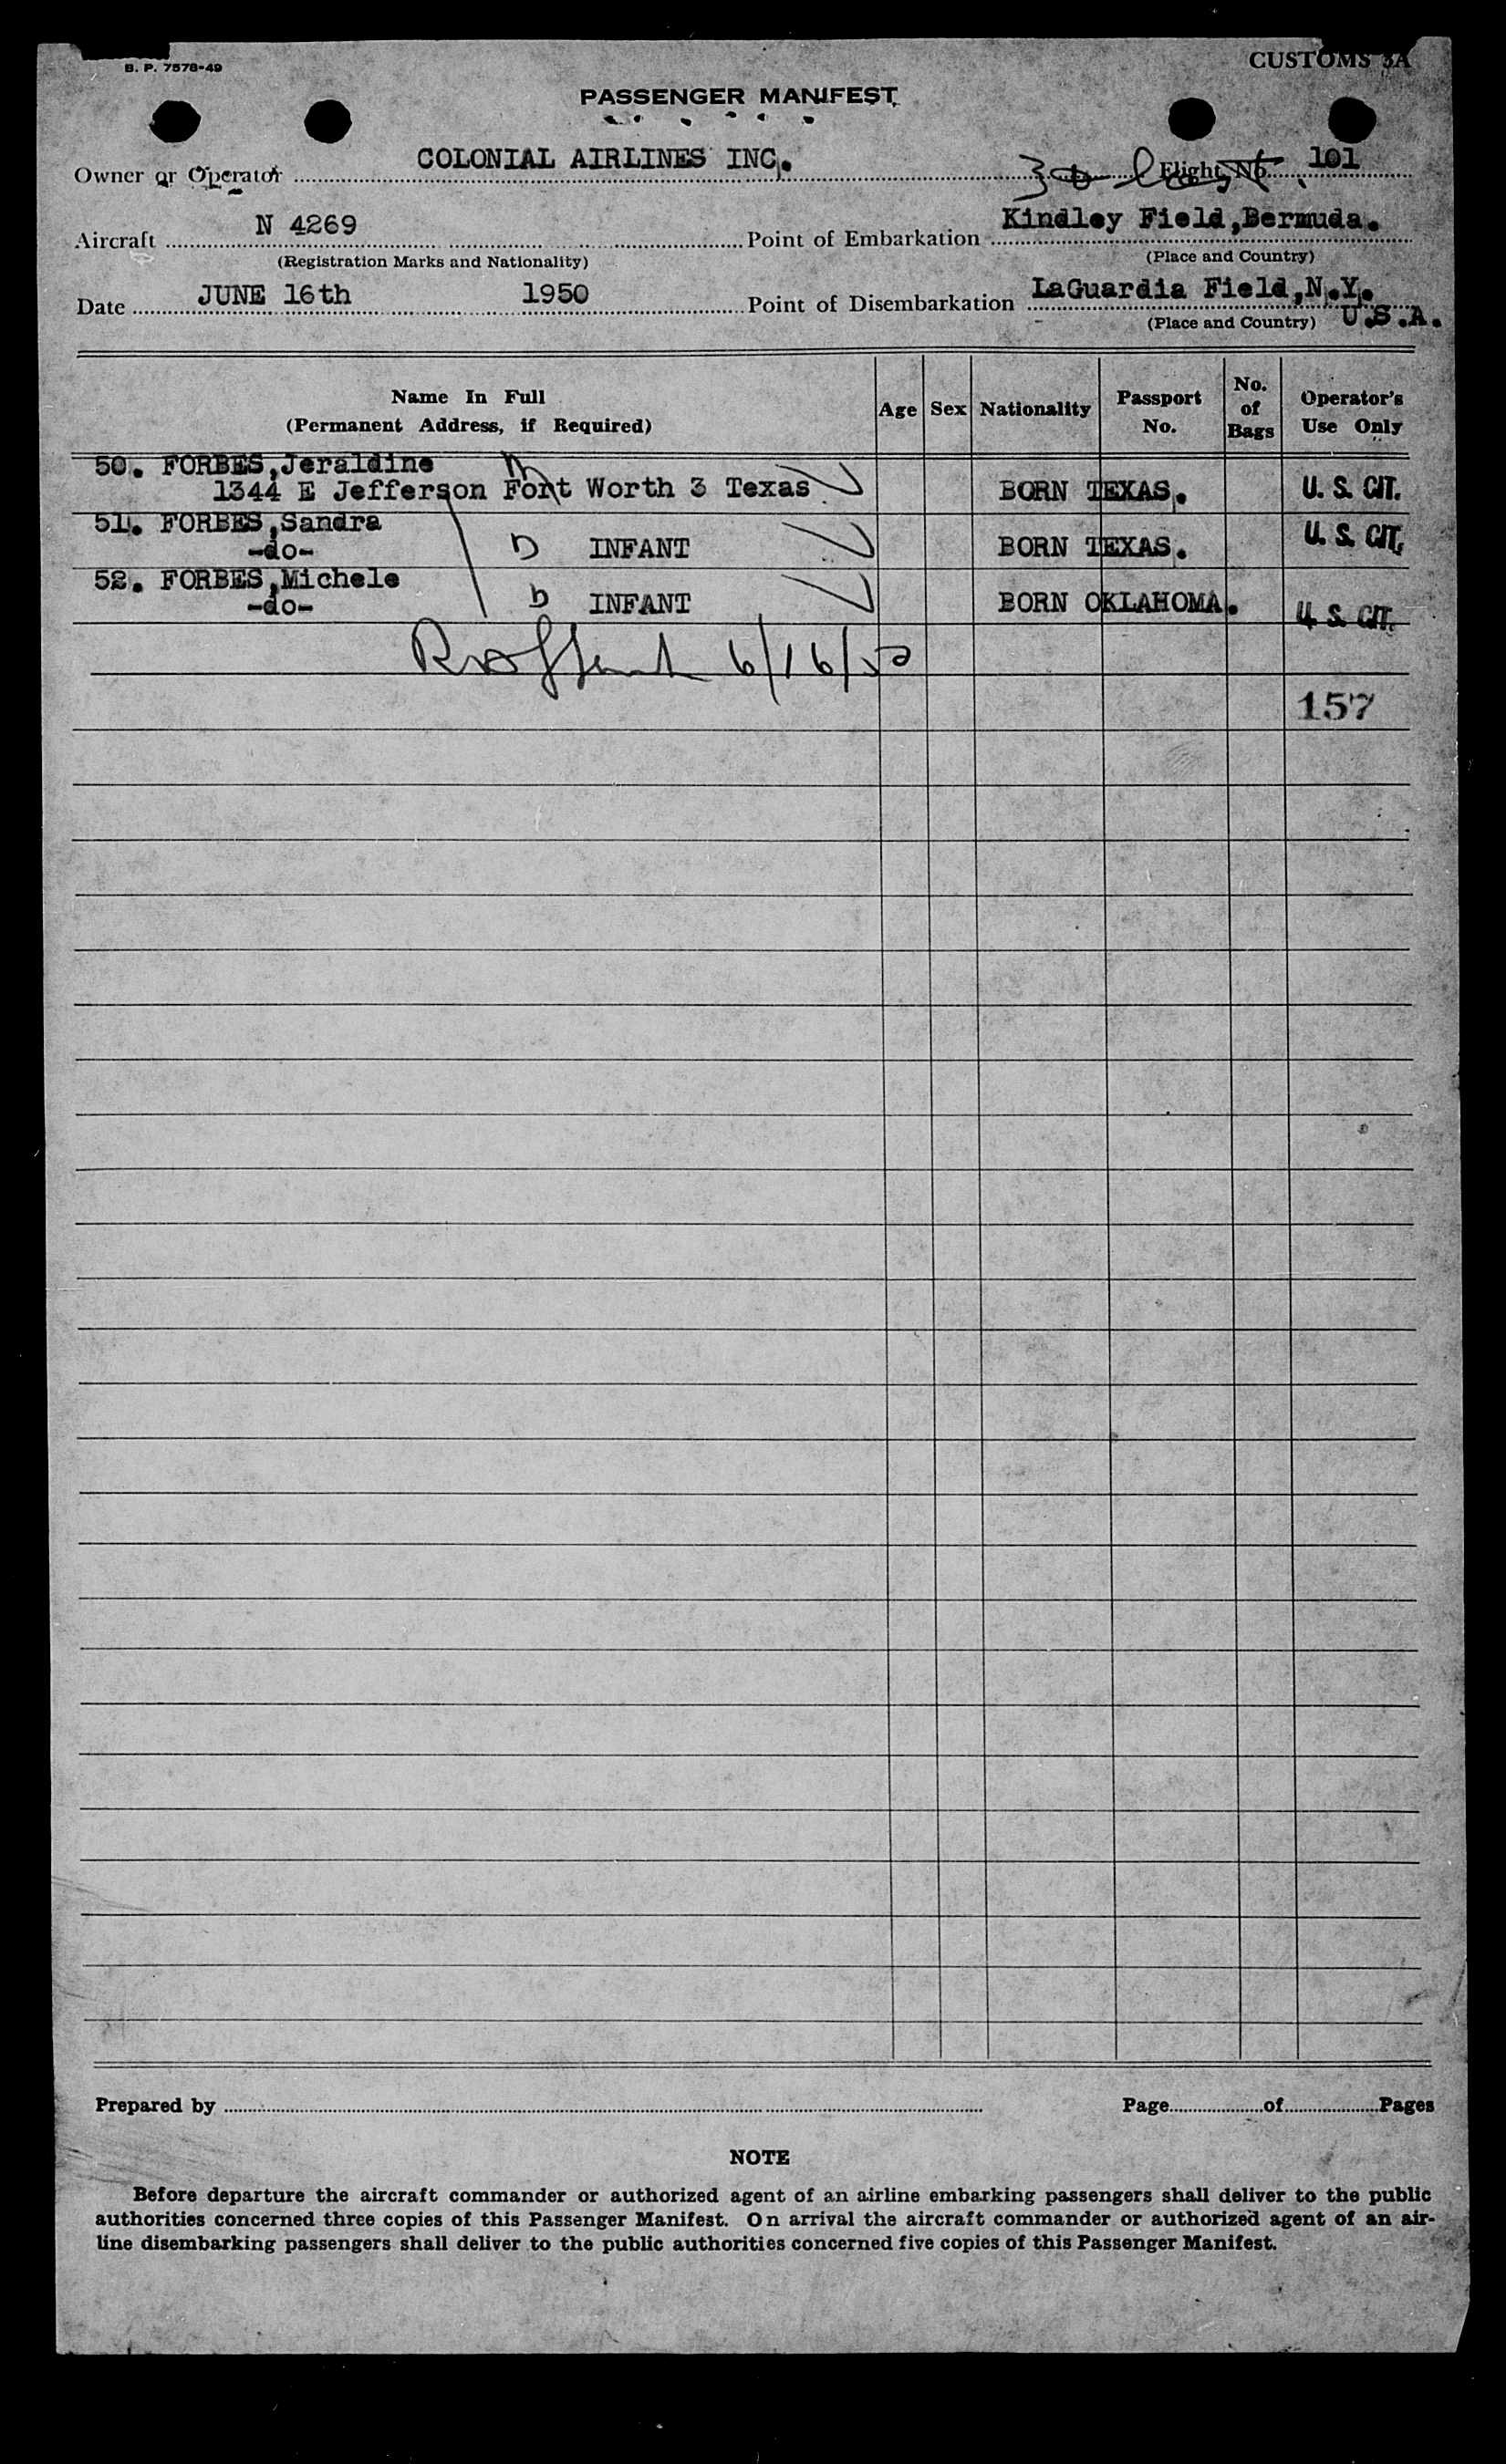 B. P. 7578-49
CUSTOMS 3A
PASSENGER MANIFEST
Owner or Operator COLONIAL AIRLINES INC. Flight No. 101
Aircraft N 4269 Point of Embarkation Kindley Field,Bermuda.
(Registration Marks and Nationality) (Place and Country)
Date JUNE 16th 1950 Point of Disembarkation LaGuardia Field,N.Y.
(Place and Country) U.S.A.
Name In Full
(Permanent Address, if Required) Age Sex Nationality Passport No. No. of Bags Operator's Use Only
50. FORBES,Jeraldine
1344 E Jefferson Fort Worth 3 Texas BORN TEXAS. U. S. CIT.
51. FORBES,Sandra
-do- b INFANT BORN TEXAS. U. S. CIT.
52. FORBES,Michele
-do- b INFANT BORN OKLAHOMA. U. S. CIT.
6/16/50
157
Prepared by Page of Pages
NOTE
Before departure the aircraft commander or authorized agent of an airline embarking passengers shall deliver to the public
authorities concerned three copies of this Passenger Manifest. On arrival the aircraft commander or authorized agent of an air-
line disembarking passengers shall deliver to the public authorities concerned five copies of this Passenger Manifest.